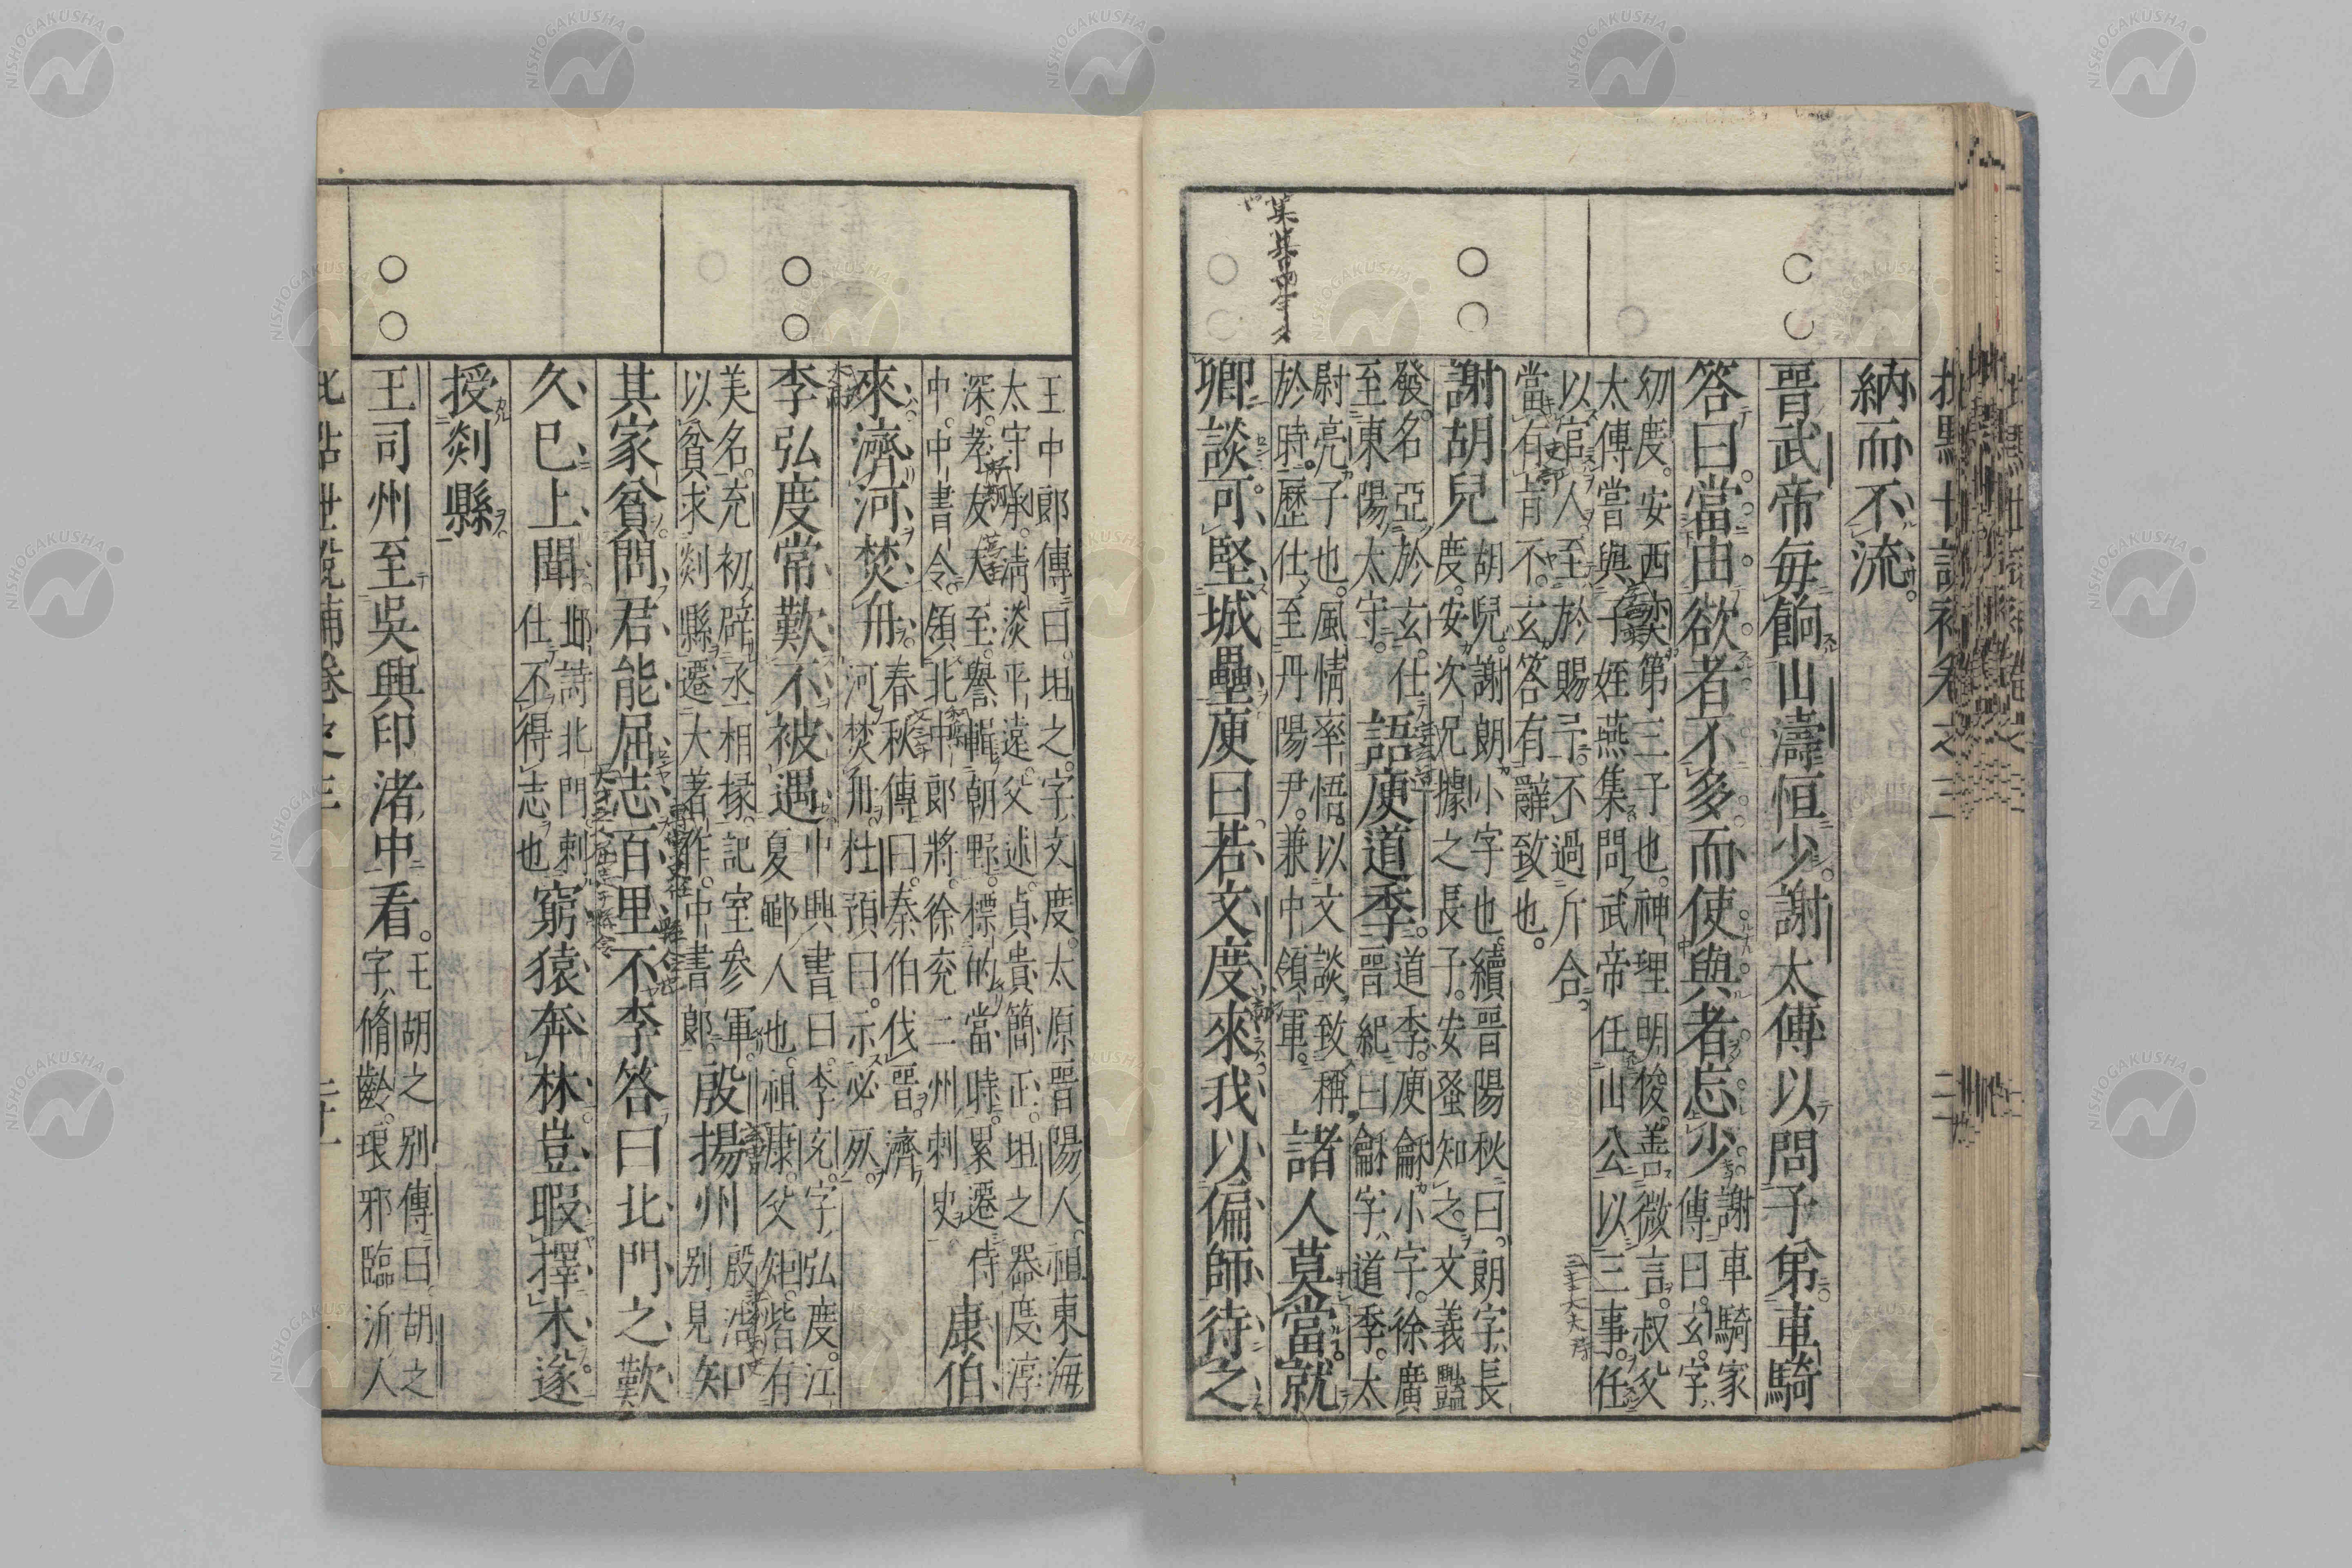 納而不流。
晉武帝每餉山濤恒少。謝太傅以問子弟。車騎
答曰。當由欲者不多。而使與者忘少。謝車騎家
傳曰。玄。字
幼度。安西奕第三子也。神理明俊。善微言。叔父
太傅嘗與子姪燕集。問武帝任山公以三事。任
以官人。至於賜予。不過斤合。
當有旨不。玄答有辭致也。
謝胡兒
胡兒。謝朗小字也。續晉陽秋曰。朗字長
度。安次兄據之長子。安蚤知之。文義豔
發。名亞於玄。仕
至東陽太守。
語庾道季。
道季。庾龢小字。徐廣
晉紀曰。龢字道季。太
尉亮子也。風情率悟。以文談致稱
於時。歷仕至丹陽尹。兼中領軍。
諸人莫當就
卿談。可堅城壘。庾曰。若文度來。我以偏師待之
王中郎傳曰。坦之。字文度。太原晉陽人。祖東海
太守承。淸淡平遠。父述。貞貴簡正。坦之器度淳
深。孝友天至。譽輯朝野。標的當時。累遷侍
中。中書令。領北中郎將。徐兖二州刺史。
康伯
來。濟河焚舟。
春秋傳曰。秦伯伐晉。濟
河焚舟。杜預曰。示必死。
李弘度常歎不被遇。
中興書曰。李充。字弘度。江
夏鄳人也。祖康。父矩。皆有
美名。充初辟丞相掾。記室參軍。
以貧求剡縣。遷大著作。中書郎。
殷揚州
殷浩
別見
知
其家貧。問君能屈志百里不。李答曰。北門之歎
久已上聞。
邶詩北門。刺
仕不得志也
窮猿奔林。豈暇擇木。遂
授剡縣。
王司州至吳興印渚中看。
王胡之別傳曰。胡之
字脩齡。琅邪臨沂人